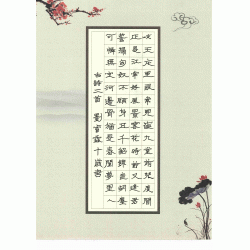 岐王宅里尋常見崔九堂前幾度聞
正是江南好風景落花時節又逢君
誓掃匈奴不顧身五千貂錦喪胡塵
可憐無定河邊骨猶是春閨夢里人
古詩二首 劉 十歲書